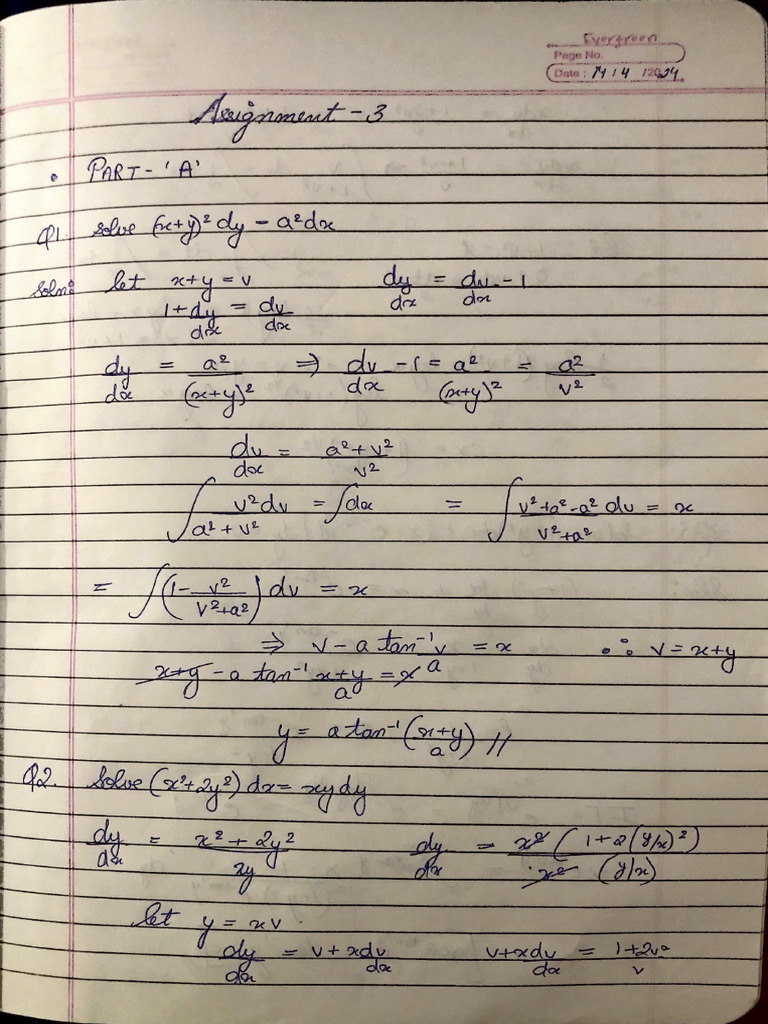 Evergreen
Page No.
Date: 14/4/2024
Assignment - 3
• PART - 'A'
Q1. Solve (x+y)² dy - a² dx
Soln: let x+y = v    dy/dx = dv/dx - 1
1 + dy/dx = dv/dx
dy/dx = a²/(x+y)² ⇒ dv/dx - 1 = a²/(x+y)² = a²/v²
dv/dx = (a²+v²)/v²
∫ v²dv/(a²+v²) = ∫dx = ∫ (v²+a²-a²)/(v²+a²) dv = x
= ∫(1 - v²/(v²+a²)) dv = x
⇒ v - a tan⁻¹ v/a = x    ∴ v = x+y
x+y - a tan⁻¹ (x+y)/a = x
y = a tan⁻¹ ((x+y)/a) //
Q2. Solve (x²+2y²) dx = xy dy
dy/dx = (x²+2y²)/xy    dy/dx = x² (1+2(y/x)²)/x² (y/x)
let y = xv.
dy/dx = v + x dv/dx    v + x dv/dx = (1+2v²)/v